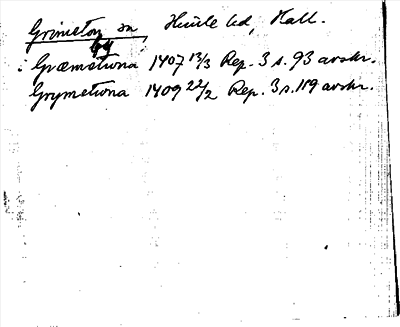 Grimeton sn, Himle hd, Hall.
by
i Græmetwna 1407 13/3 Rep. 3 s. 93 avskr.
Grymetwna 1409 22/2 Rep. 3 s. 119 avskr.